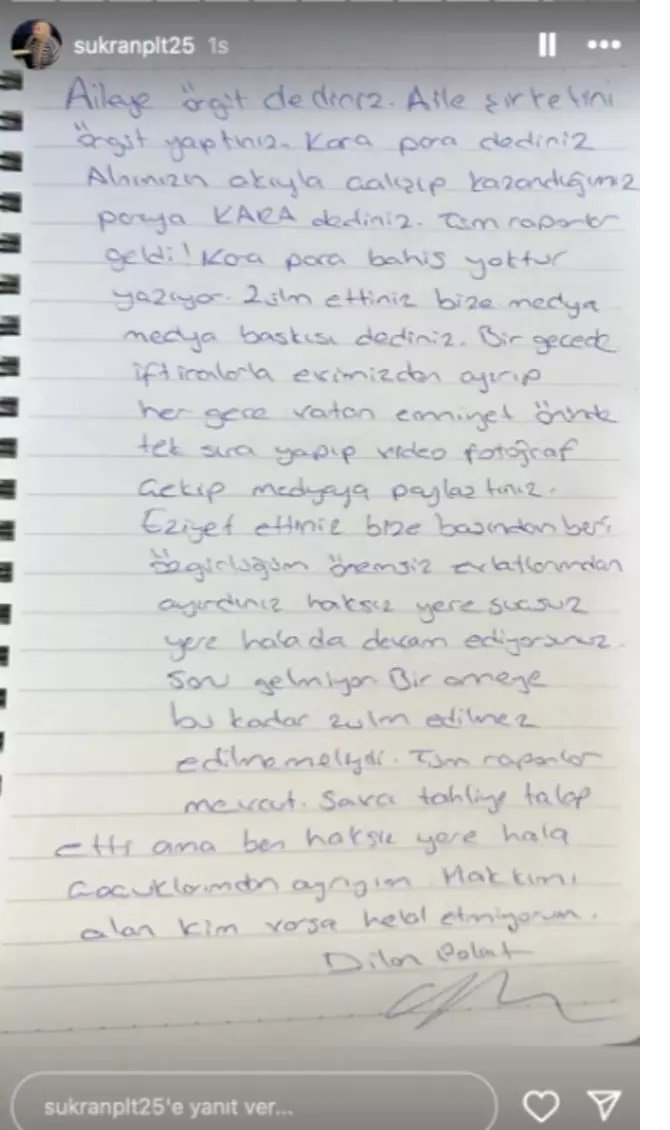 sukranplt25 1s
Aileye örgüt dediniz. Aile şirketini
örgüt yaptınız. Kara para dediniz
Alnımızın akıyla çalışıp kazandığımız
paraya KARA dediniz. Tüm raporlar
geldi! Kara para bahis yoktur
yazıyor. Zulm ettiniz bize medya
medya baskısı dediniz. Bir gecede
iftiralarla evimizden ayırıp
her gece vatan emniyet önünde
tek sıra yapıp video fotoğraf
Çekip medyaya paylaştınız.
Eziyet ettiniz bize başından beri
özgürlüğüm önemsiz evlatlarımdan
ayırdınız haksız yere suçsuz
yere halada devam ediyorsunuz.
Sonu gelmiyor Bir anneye
bu kadar zulm edilmez
edilmemeliydi. Tüm raporlar
mevcut. Savcı tahliye talep
etti ama ben haksız yere hala
Çocuklarımdan ayrıyım Hakkımı
alan kim varsa helal etmiyorum.
Dilan Polat
sukranplt25'e yanıt ver...